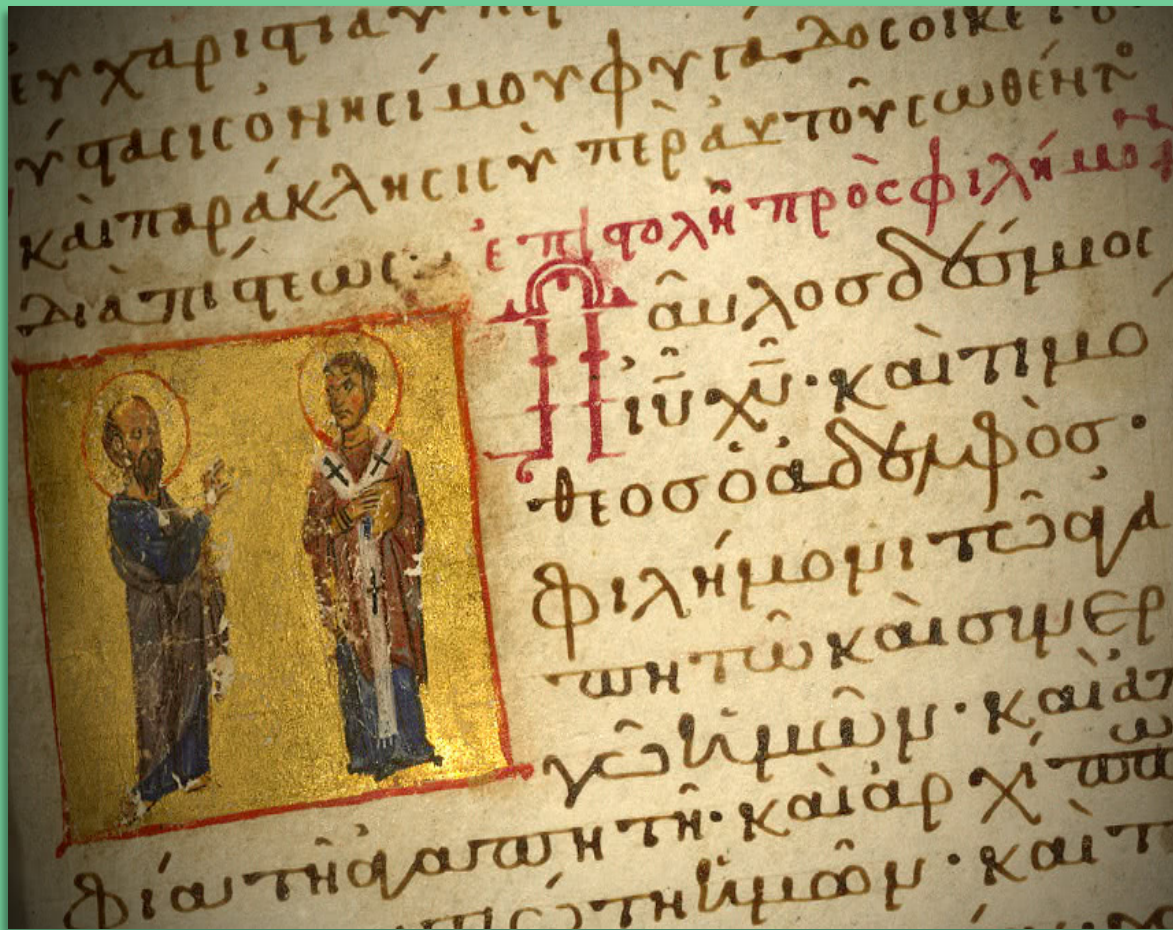 εὐχαριστίαν
ὑπὲρ ὀνησίμου φυγάδος οἰκέτου
καὶ παράκλησις ὑπὲρ αὐτοῦ σωθέντο
διὰ πίστεως
ἐπιστολὴ πρὸς φιλήμονα
Παῦλοσ δέσμιος
ιῦ χῦ· καὶ τιμό
θεοσ ὁ ἀδελφὸσ·
φιλήμονι τῶ ἀγα
πητῶ καὶ συνερ
γῶ ἡμῶν· καὶ ἀπ
φία τῆ ἀγαπητῆ· καὶ ἀρχίππω
ἡμῶν· καὶ τ